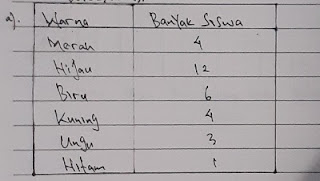 a). Warna Banyak Siswa
Merah 4
Hijau 12
Biru 6
Kuning 4
Ungu 3
Hitam 1